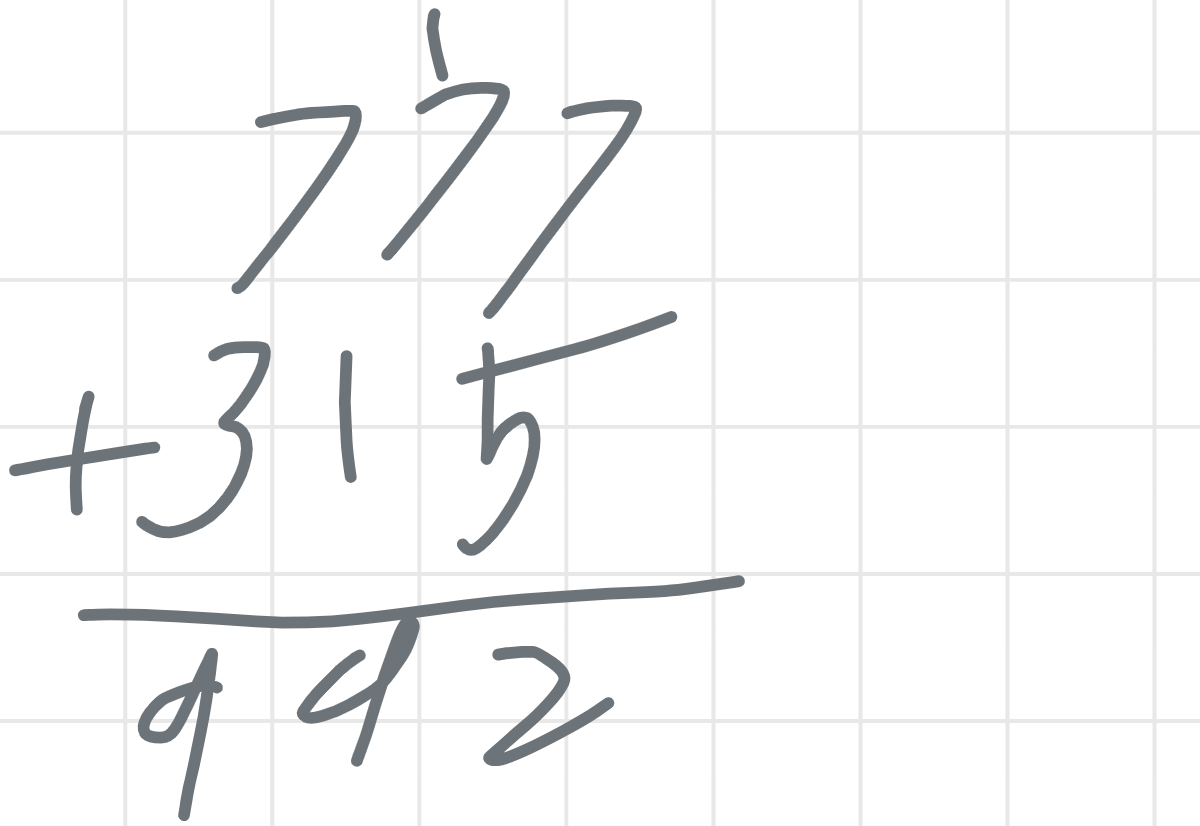 1
777
+315
992